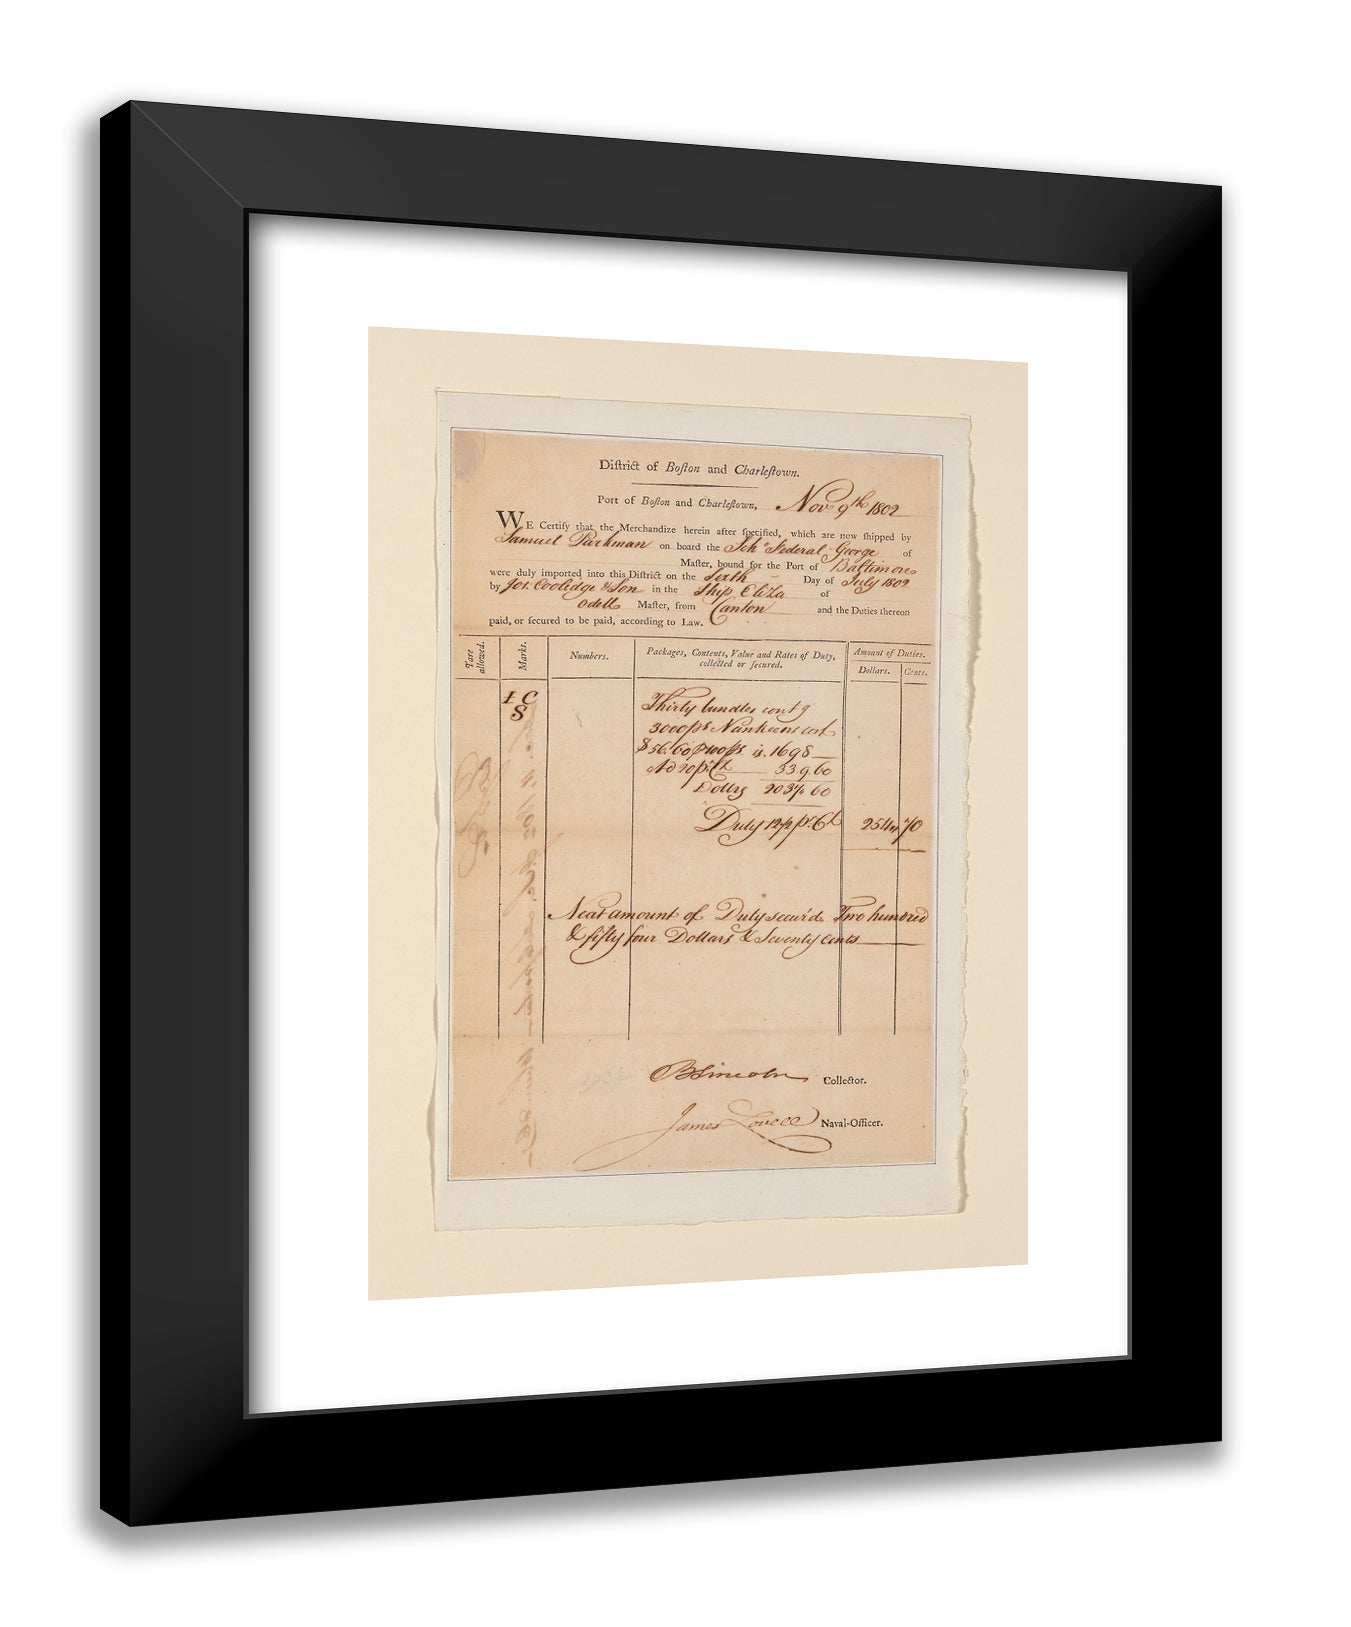 Diſtrict of Boſton and Charleſtown.
Port of Boſton and Charleſtown, Nov 9th 1802
WE Certify that the Merchandize herein after ſpecified, which are now ſhipped by
Samuel Parkman on board the Schr Federal George of
Maſter, bound for the Port of Baltimore
were duly imported into this Diſtrict on the Sixth Day of July 1802
by Jos. Coolidge & Son in the Ship Eliza of
Odell Maſter, from Canton and the Duties thereon
paid, or ſecured to be paid, according to Law.
Tare allowed. Marks. Numbers. Packages, Contents, Value and Rates of Duty, collected or ſecured. Amount of Duties. Dollars. Cents.
I C
S
Thirty bundles contg
3000 ps Nankeens cost
$56.60 p 100 ps is. 1698
Ad 20 p Ct 339.60
Dollrs 2037 60
Duty 12½ pr Ct 254 70
Neat amount of Duty secur'd Two hundred
& fifty four Dollars & Seventy cents
B Lincoln Collector.
James Lovell Naval-Officer.